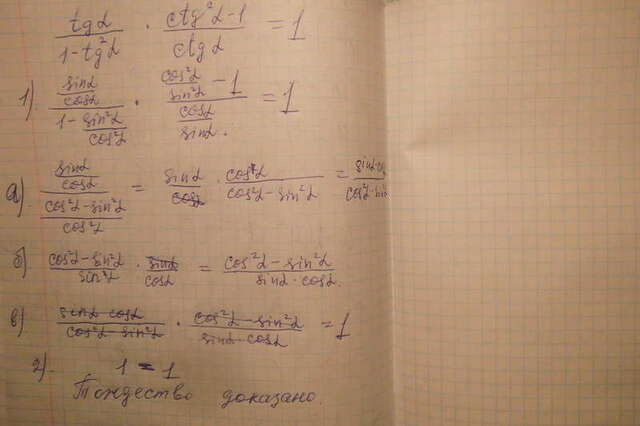 tgα / (1 - tg²α) · (ctg²α - 1) / ctgα = 1
1). (sinα/cosα) / (1 - sin²α/cos²α) · (cos²α/sin²α - 1) / (cosα/sinα) = 1
а). (sinα/cosα) / ((cos²α - sin²α)/cos²α) = sinα/cosα · cos²α/(cos²α - sin²α) = sinα·cos / cos²α - sin
б) (cos²α - sin²α)/sin²α · sinα/cosα = (cos²α - sin²α)/(sinα · cosα)
в) (sinα · cosα)/(cos²α - sin²α) · (cos²α - sin²α)/(sinα · cosα) = 1
2). 1 = 1
Тождество доказано.